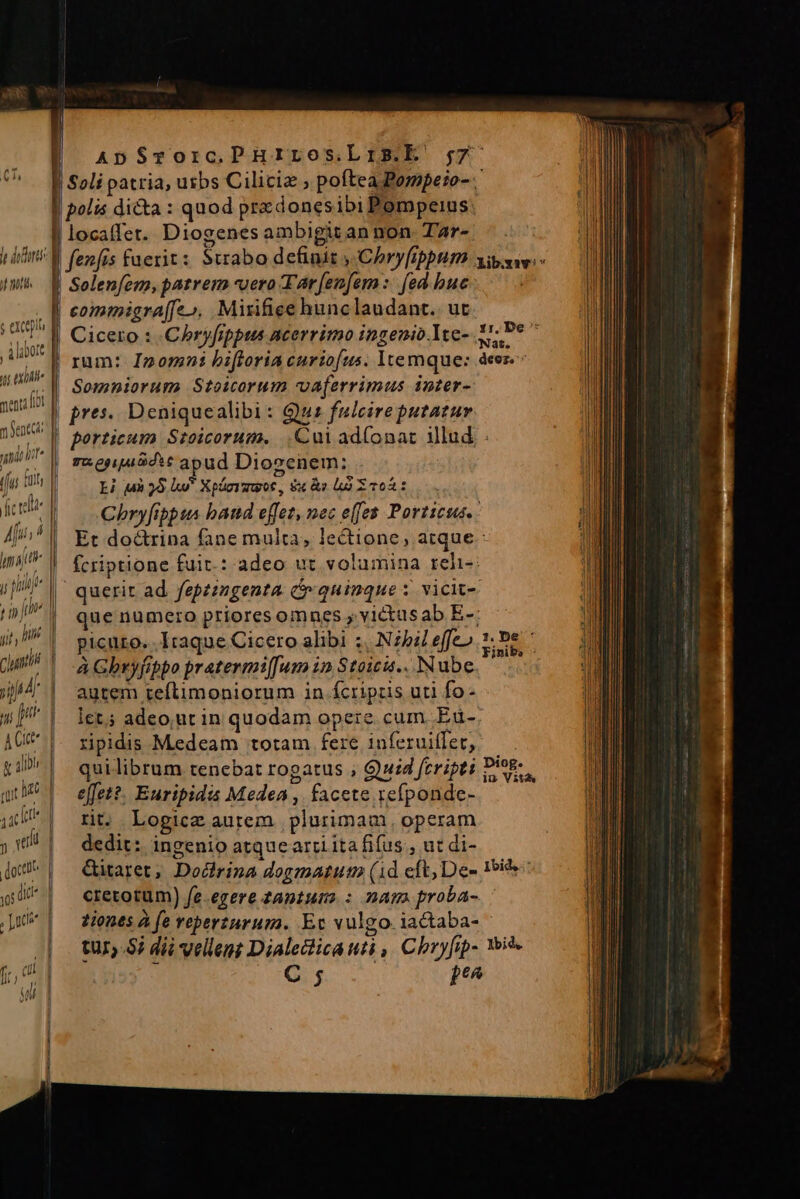 AD STOIC. PHILOS. LIB. I. 57
Soli patria, urbs Ciliciæ, postea Pompeio-
polis dicta: quod prædones ibi Pompeius
locasset. Diogenes ambigit an non Tar-
sensis fuerit: Strabo definit, Chrysippum Lib. XIV.
Solensem, patrem vero Tarsensem: sed huc
commigrasse. Mirifice hunc laudant. ut
Cicero: Chrysippus acerrimo ingenio. Ite- 11. De Nat.
rum: In omni historia curiosus. Itemque: deor.
Somniorum Stoicorum vaferrimus inter-
pres. Denique alibi: Qui fulcire putatur
porticum Stoicorum. Cui adsonat illud
apud Diogenem:
Εἰ μὴ γὸ ἰῶ Χρύσιππος, ἐκ ἂν ἰῶ Στοά:
Chrysippus haud esset, nec esses Porticus.
Et doctrina sane multa, lectione, atque
scriptione fuit: adeo ut volumina reli-
querit ad septingenta & quinque: vicit-
que numero priores omnes, victus ab E-
picuro. Itaque Cicero alibi: Nihil esse 1. De
à Chrysippo prætermissum in Stoicis. Nube Finib.
autem testimoniorum in scriptis uti so-
let; adeo, ut in quodam opere cum Eu-
ripidis Medeam totam fere inseruisset,
qui librum tenebat rogatus, Quid scripti Diog.
esset?. Euripidis Medea, facete responde- in Vita,
rit. Logicæ autem plurimam operam
dedit: ingenio atque arti ita fisus, ut di-
ctitaret, Doctrina dogmatum (id est, De- Ibid.
cretorum) se egere tantum: nam proba-
tiones à se reperturum. Et vulgo iactaba-
tur, Si dii vellent Dialectica uti, Chrysip- Ibid.
C 5 pea